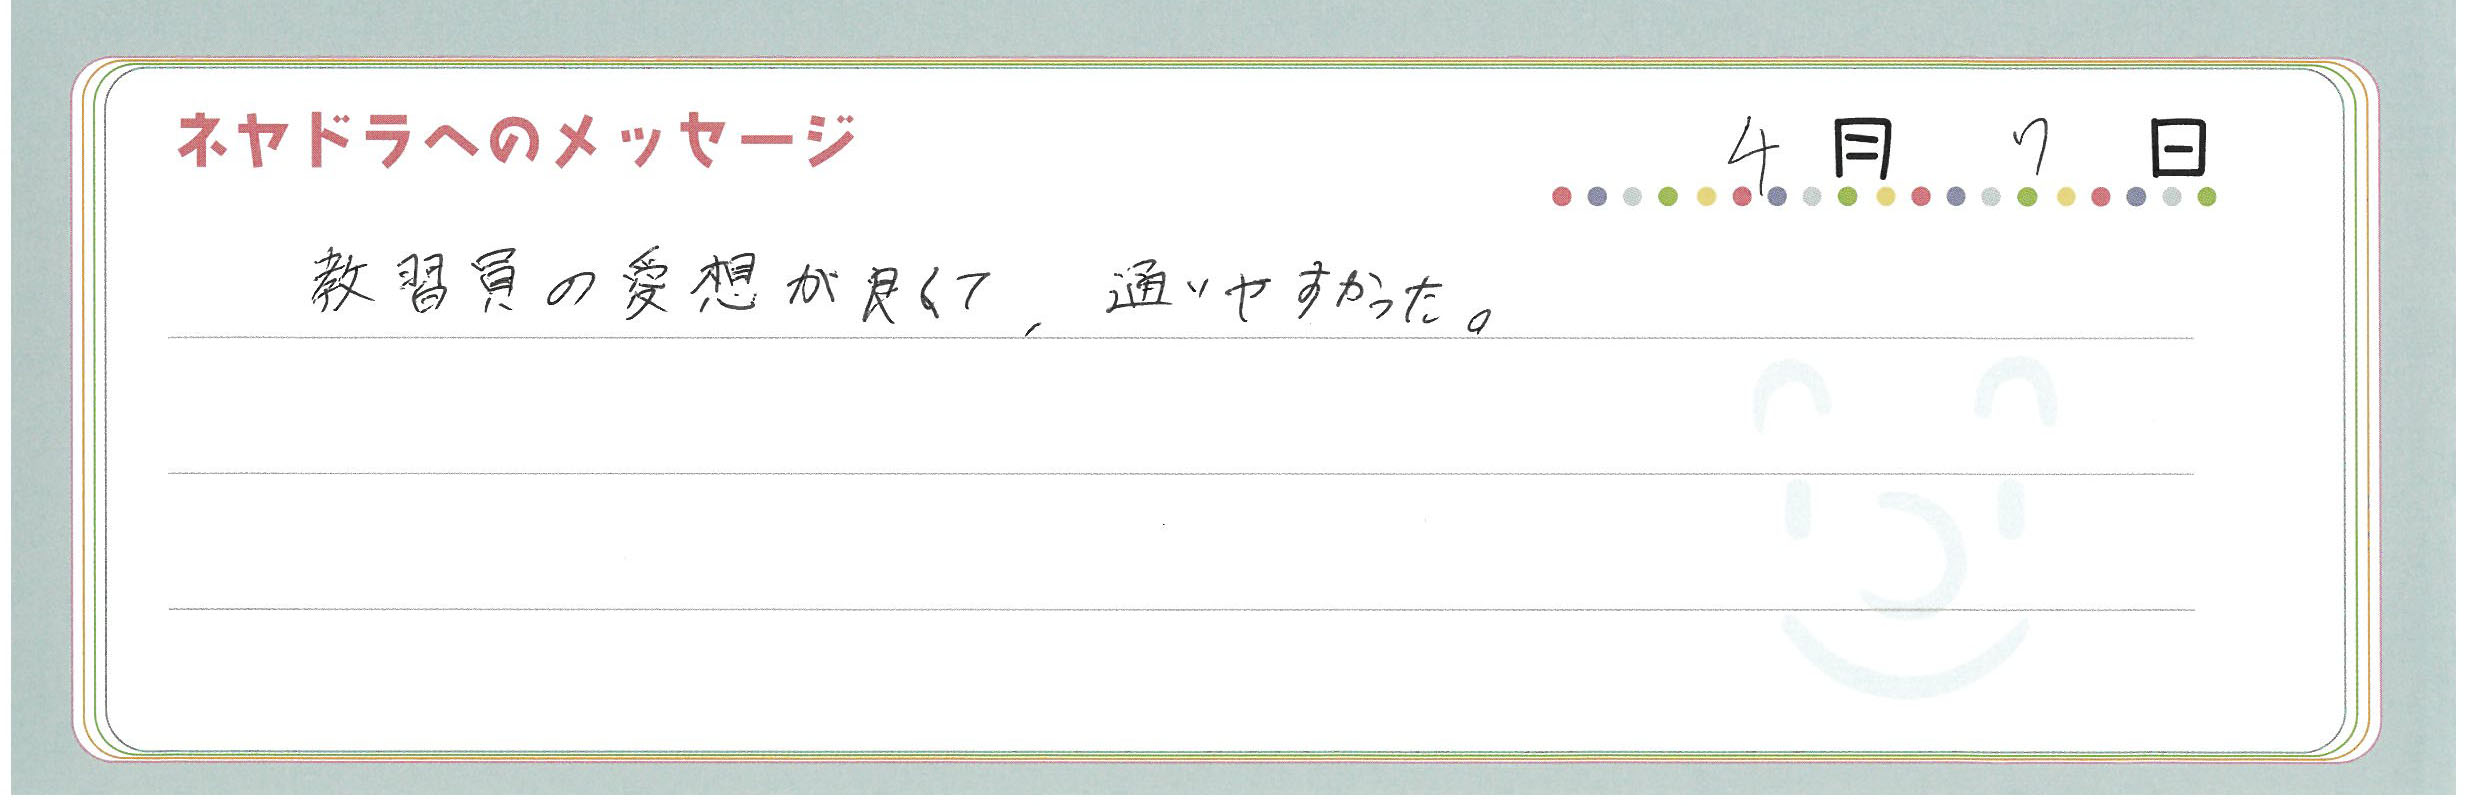 ネヤドラへのメッセージ
4月7日
教習員の愛想が良くて、通いやすかった。